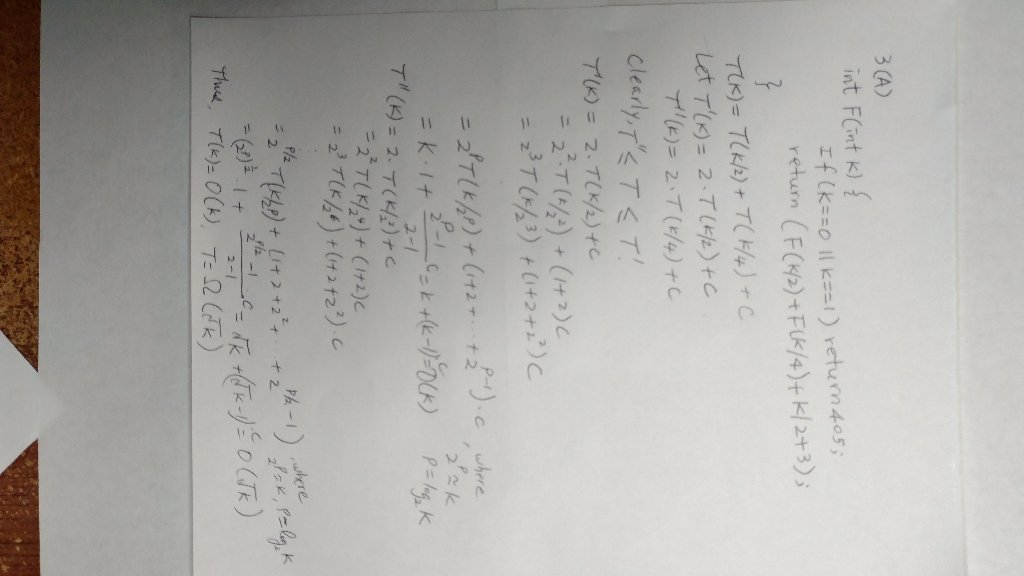 3(A)
int F(int K) {
If (K==0 || K==1) return 405;
return (F(K/2)+F(K/4)+K/2+3);
}
T(K)= T(K/2)+ T(K/4)+C
Let T'(K)= 2·T(K/2)+C
T''(K)= 2·T(K/4)+C
Clearly, T'' ≤ T ≤ T'!
T'(K) = 2·T(K/2)+C
= 2²·T(K/2²) + (1+2)C
= 2³T(K/2³) + (1+2+2²)C
= 2^P T(K/2^P) + (1+2+···+2^(P-1))·C, where
2^P ≈ K
= K·1 + (2^P-1)/(2-1) C = K+(K-1)C = O(K) P=log₂K
T''(K) = 2·T(K/2²)+C
= 2²T(K/2⁴) + (1+2)C
= 2³T(K/2⁶)+(1+2+2²)·C
⋮
= 2^(P/2) T(K/2^P) + (1+2+2²+···+2^(P/2-1)), where
2^P≈K, P≈log₂K
= (2^P)^(1/2)·1 + (2^(P/2)-1)/(2-1)·C = √K +(√K-1)·C = O(√K)
Thus, T(K)= O(K), T=Ω(√K)